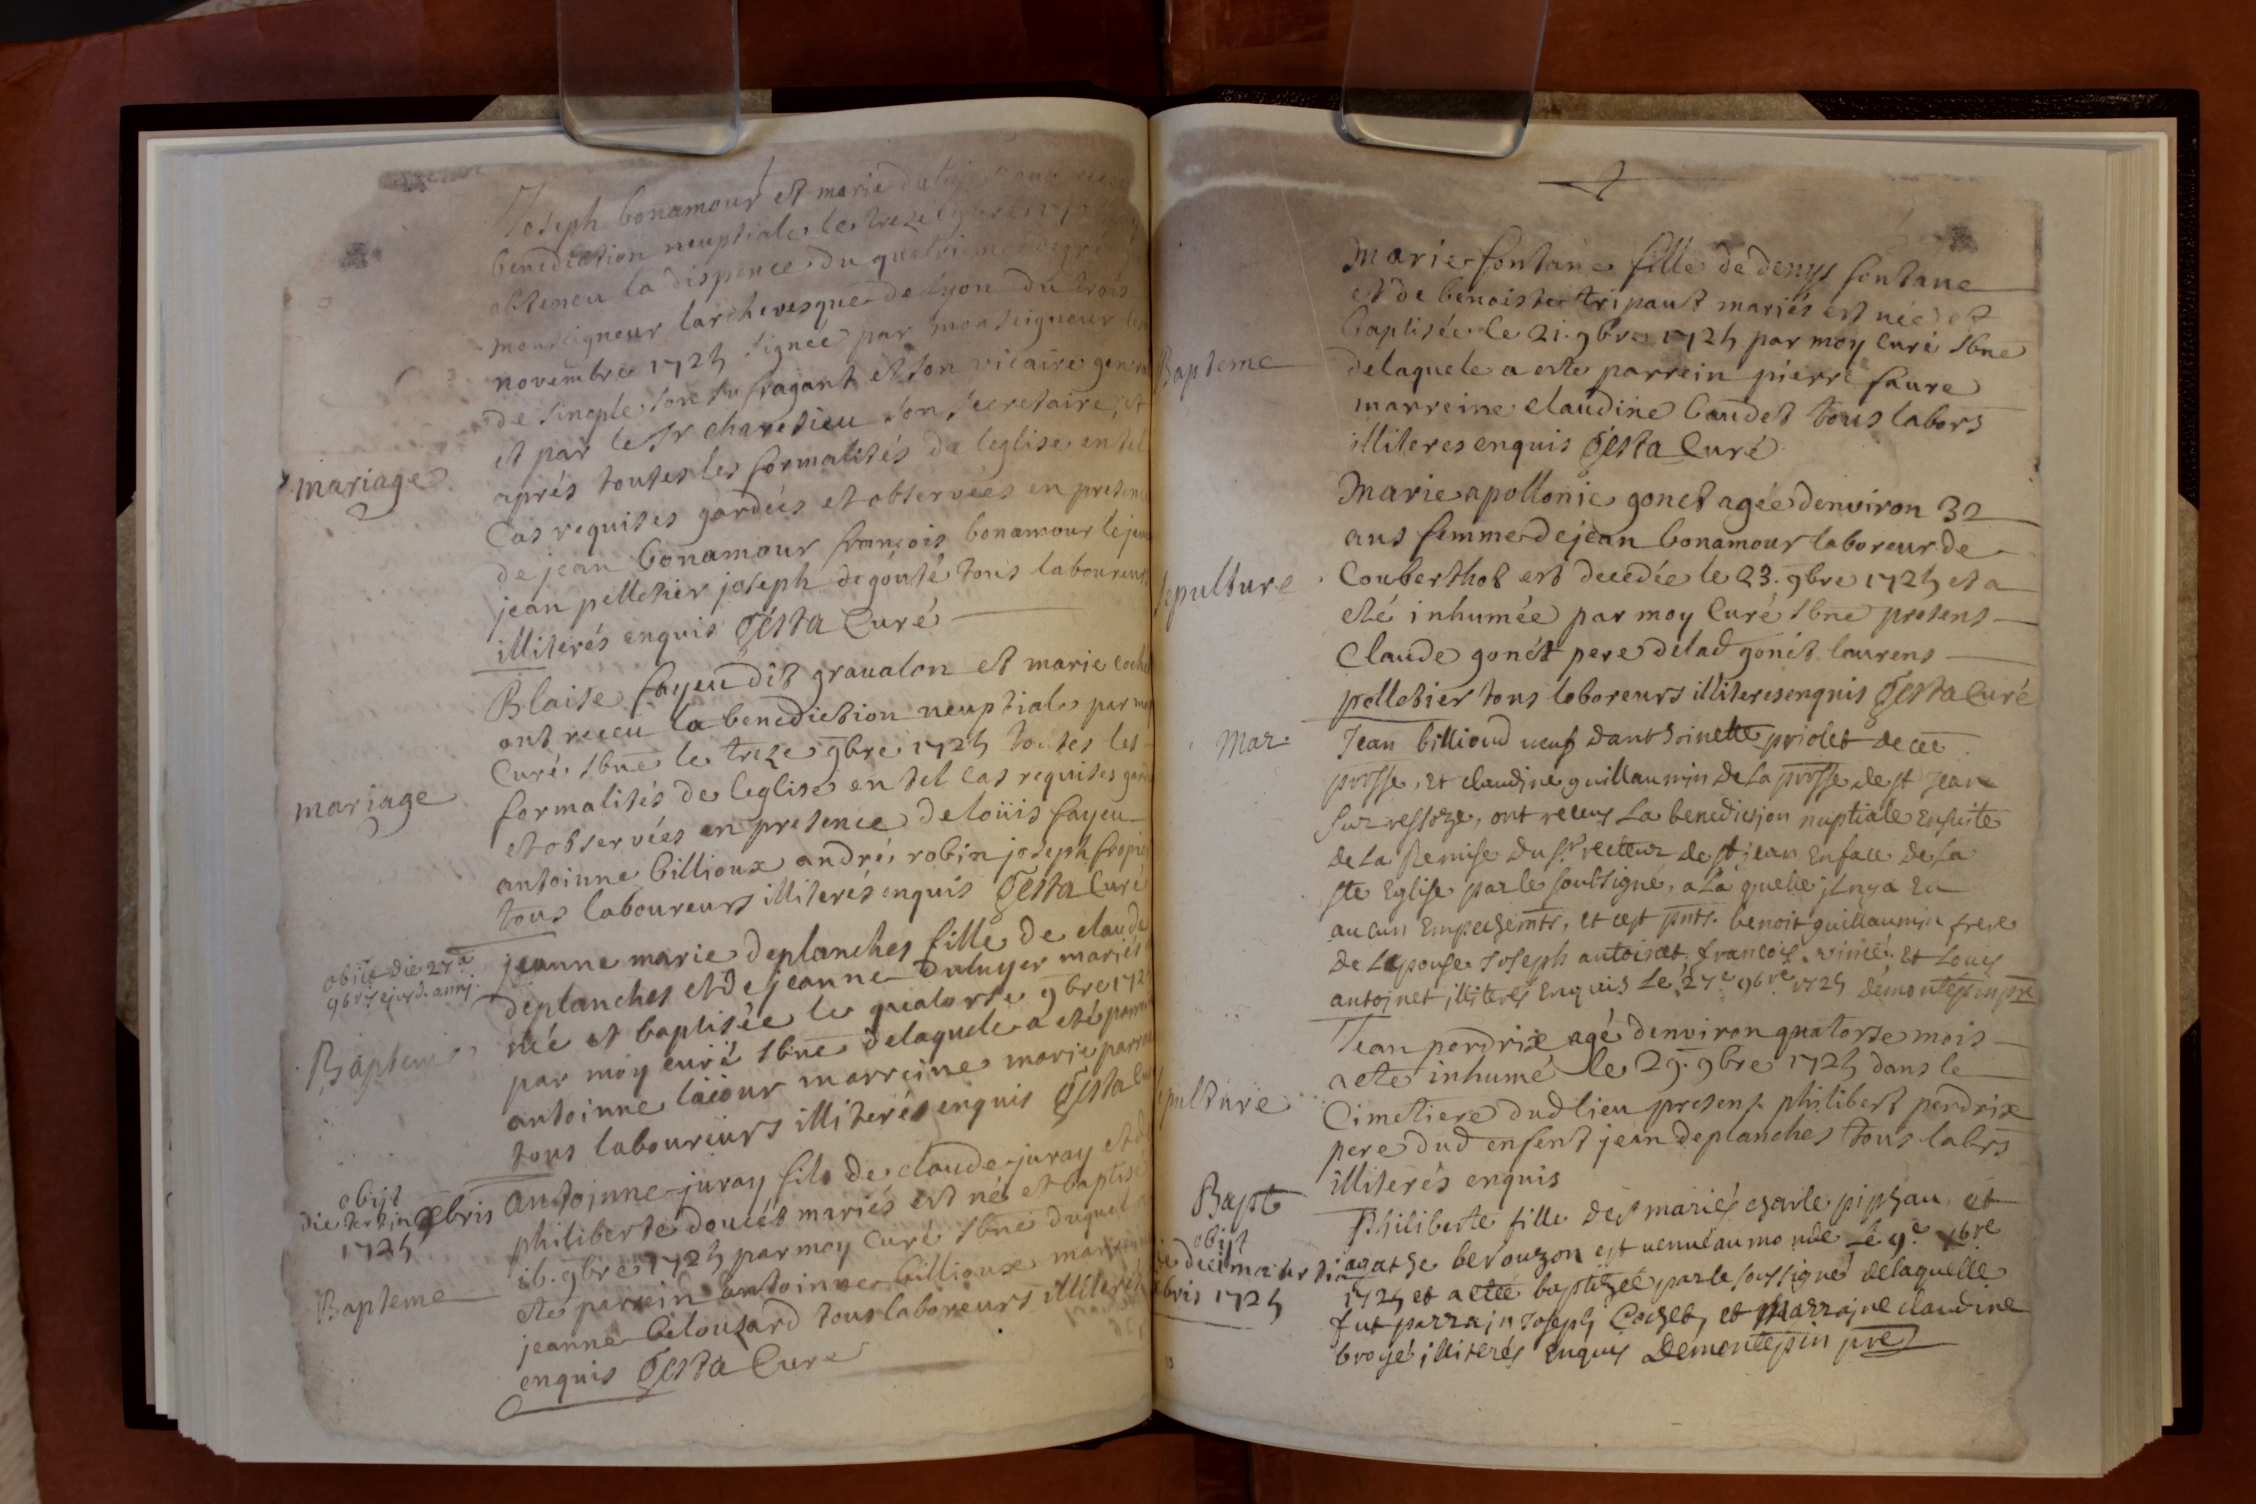 Joseph bonamour et marie
benediction neuptiale le treze 9bre
obteneu la dispence du quatrieme degré
monseigneur larchevesque de lyon du trois
novembre 1725 signée par monseigneur
de sinople son suffragant et son vicaire gen
et par le Sr charetieu son secretaire, et
mariage
aprés toutes les formalités de leglise en tel
Cas requises gardées et observées en presen
de jean bonamour françois bonamour le jeu
jean pelletier joseph degouté tous laboureurs
illiterés enquis Testa Curé
Blaise fayeu dit gravalon et marie
ont receu la benediction neuptiale par moy
Curé sbne le treze 9bre 1725 toutes les
mariage
formalités de leglise en tel cas requises gard
et observées en presence de loüis fayeu
antoinne billioux andré robin joseph
tous laboureurs illiterés enquis Testa Curé
obiit die 27a
9bris ejusd. anni
jeanne marie deplanches fille de claude
deplanches et de jeanne dutuyer mariés
née et baptisée le quatorse 9bre 172
Bapteme
par moy curé sbne delaquele a eté parr
antoinne lacour marreine marie
tous laboureurs illiterés enquis Testa
obijt
die tertia xbris
1725
antoinne juray fils de claude juray et d
philiberte doucet mariés est né et baptisé
16. 9bre 1725 par moy Curé sbne duquel a
Bapteme
eté parrein antoinne billioux marreine
jeanne belouzard tous laboreurs illiterés
enquis Testa Curé
marie fontane fille de denys fontane
et de benoiste tripaut mariés est née et
baptisée le 21. 9bre 1725 par moy Curé sbne
Bapteme
delaquele a este parrein pierre faure
marreine claudine baudet tous labors
illiteres enquis Testa Curé
marie apollonie gonet agée denviron 32
ans femme de jean bonamour laboreur de
Sepulture
Couberthot est decedée le 23. 9bre 1725 et a
eté inhumée par moy Curé sbne presens
Claude gonet pere de lad gonet laurens
pelletier tous laboreurs illiteres enquis Testa Curé
Mar
Jean billioud veuf danthoinette priolet de cee
prosse, et claudine guillaumin de la prosse de st jean
sur ressoze, ont receus la benediction nuptiale ensuite
de la Remise du sr recteur de st jean en face de la
ste Eglise par le soussigné, a la quelle jl ny a Eu
aucun Empechemts, et cest pnts. benoit guillaumin frere
de Lepouse Joseph antoinet, francois vinié et Louis
antoinet, illiterés Enquis Le 27e 9bre 1725 demontepin pre
Jean perdrix agé denviron quatorse mois
a eté inhumé le 29. 9bre 1725 dans le
Sepulture
Cimetiere dud lieu present philibert perdrix
pere dud enfent jean deplanches tous labrs
illiterés enquis
Bapt
obijt
Philiberte fille des mariés charle piphau et
agathe berouzon est venue au monde Le 9e xbre
bris 1725
1725 et a eteé baptizée par le soussigné delaquelle
fut parrain Joseph Cochet, et Marraine claudine
broyé, illiterés Enquis Demontepin pre